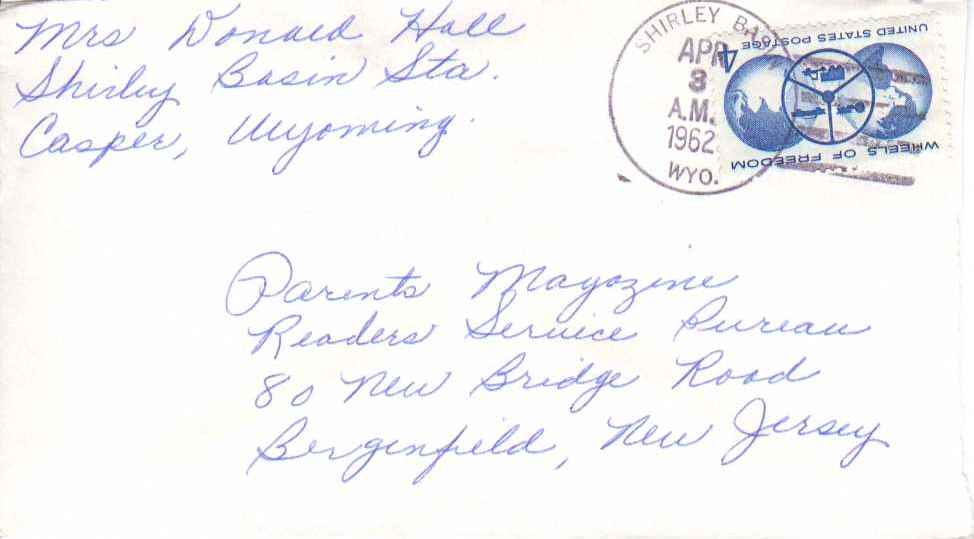 Mrs Donald Hall
Shirley Basin Sta.
Casper, Wyoming.
SHIRLEY BASIN
APR
3
A.M.
1962
WYO.
UNITED STATES POSTAGE
4¢
WHEELS OF FREEDOM
Parents Magazine
Readers Service Bureau
80 New Bridge Road
Bergenfield, New Jersey